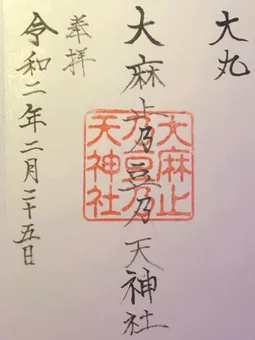 大丸
大麻止乃豆乃天神社
大麻止
乃豆乃
天神社
奉拝
令和二年二月二十五日